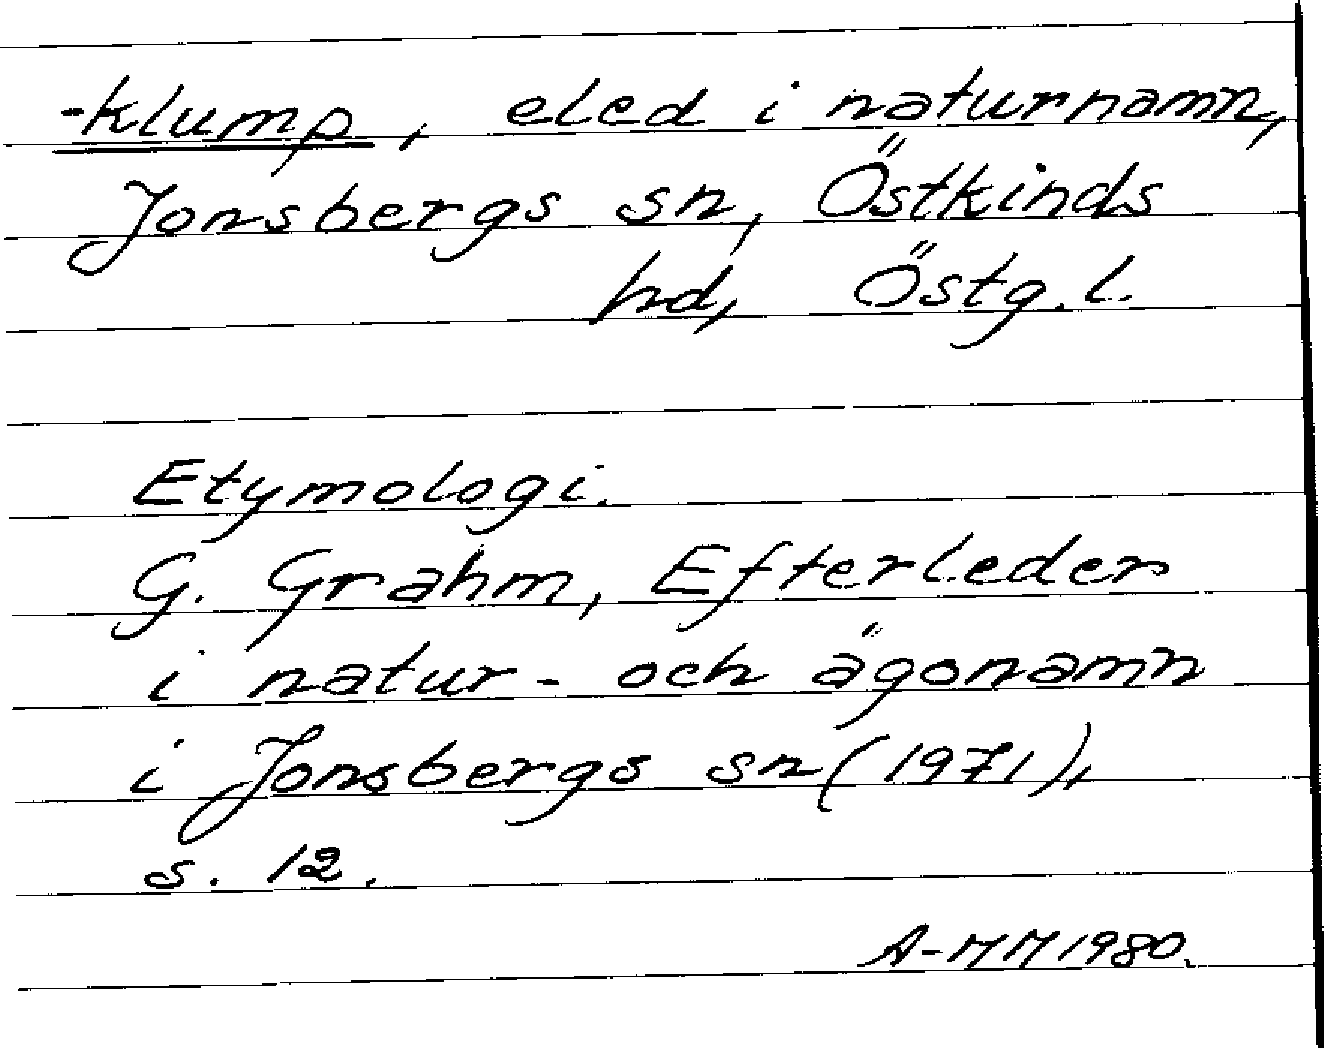 -klump, eled i naturnamn,
Jonsbergs sn, Östkinds
hd, Östg.l.
Etymologi.
G. Grahm, Efterleder
i natur- och ägonamn
i Jonsbergs sn (1971),
s. 12.
A-MM 1980.